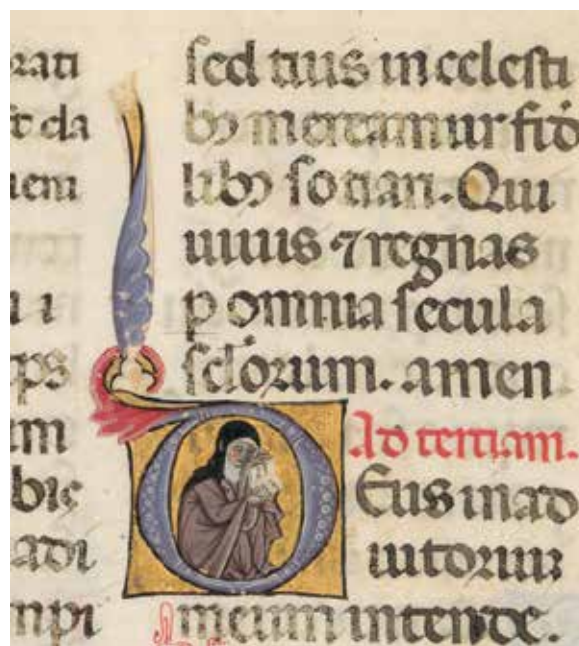 rati
cla
iem
ı ı
ps
m
bic
adi
mpi
sed tuus in celesti
bꝫ mereamur fid
libꝫ sotiari. Qui
uiuis ⁊ regnas
ꝑ omnia secula
sclōrum. amen
Ad tertiam.
Eus in ad
iutoriuꝫ
meum intende.